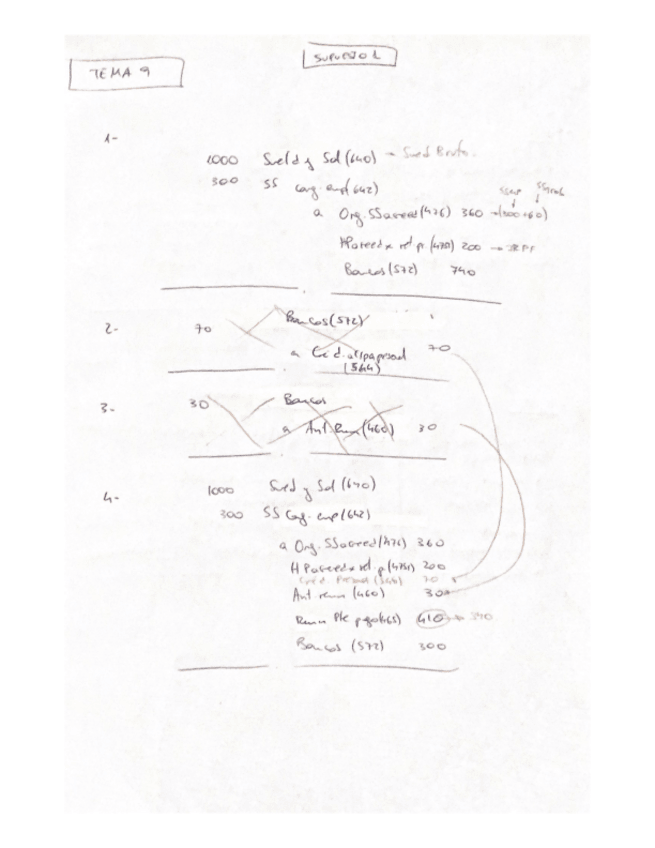 SUPUESTO 1
TEMA 9
1-
1000 Sueld y Sal (640) → Sued Bruto.
300 SS carg. emp (642)
a Org. SS acreed (476) 360 → (300+60)
HP acreed x ret p. (4751) 200 → IRPF
Bancos (572) 740
2-
70 Bancos (572)
a Créd. al/p a personal 70
(544)
3-
30 Bancos
a Ant. Rem (460) 30
4-
1000 Sued y Sal (640)
300 SS Carg. emp (642)
a Org. SS acreed (476) 360
H P acreed x ret. p (4751) 200
Créd. Personal (544) 70
Ant. rem (460) 30
Remn Pte pago (465) 410 → 340
Bancos (572) 300